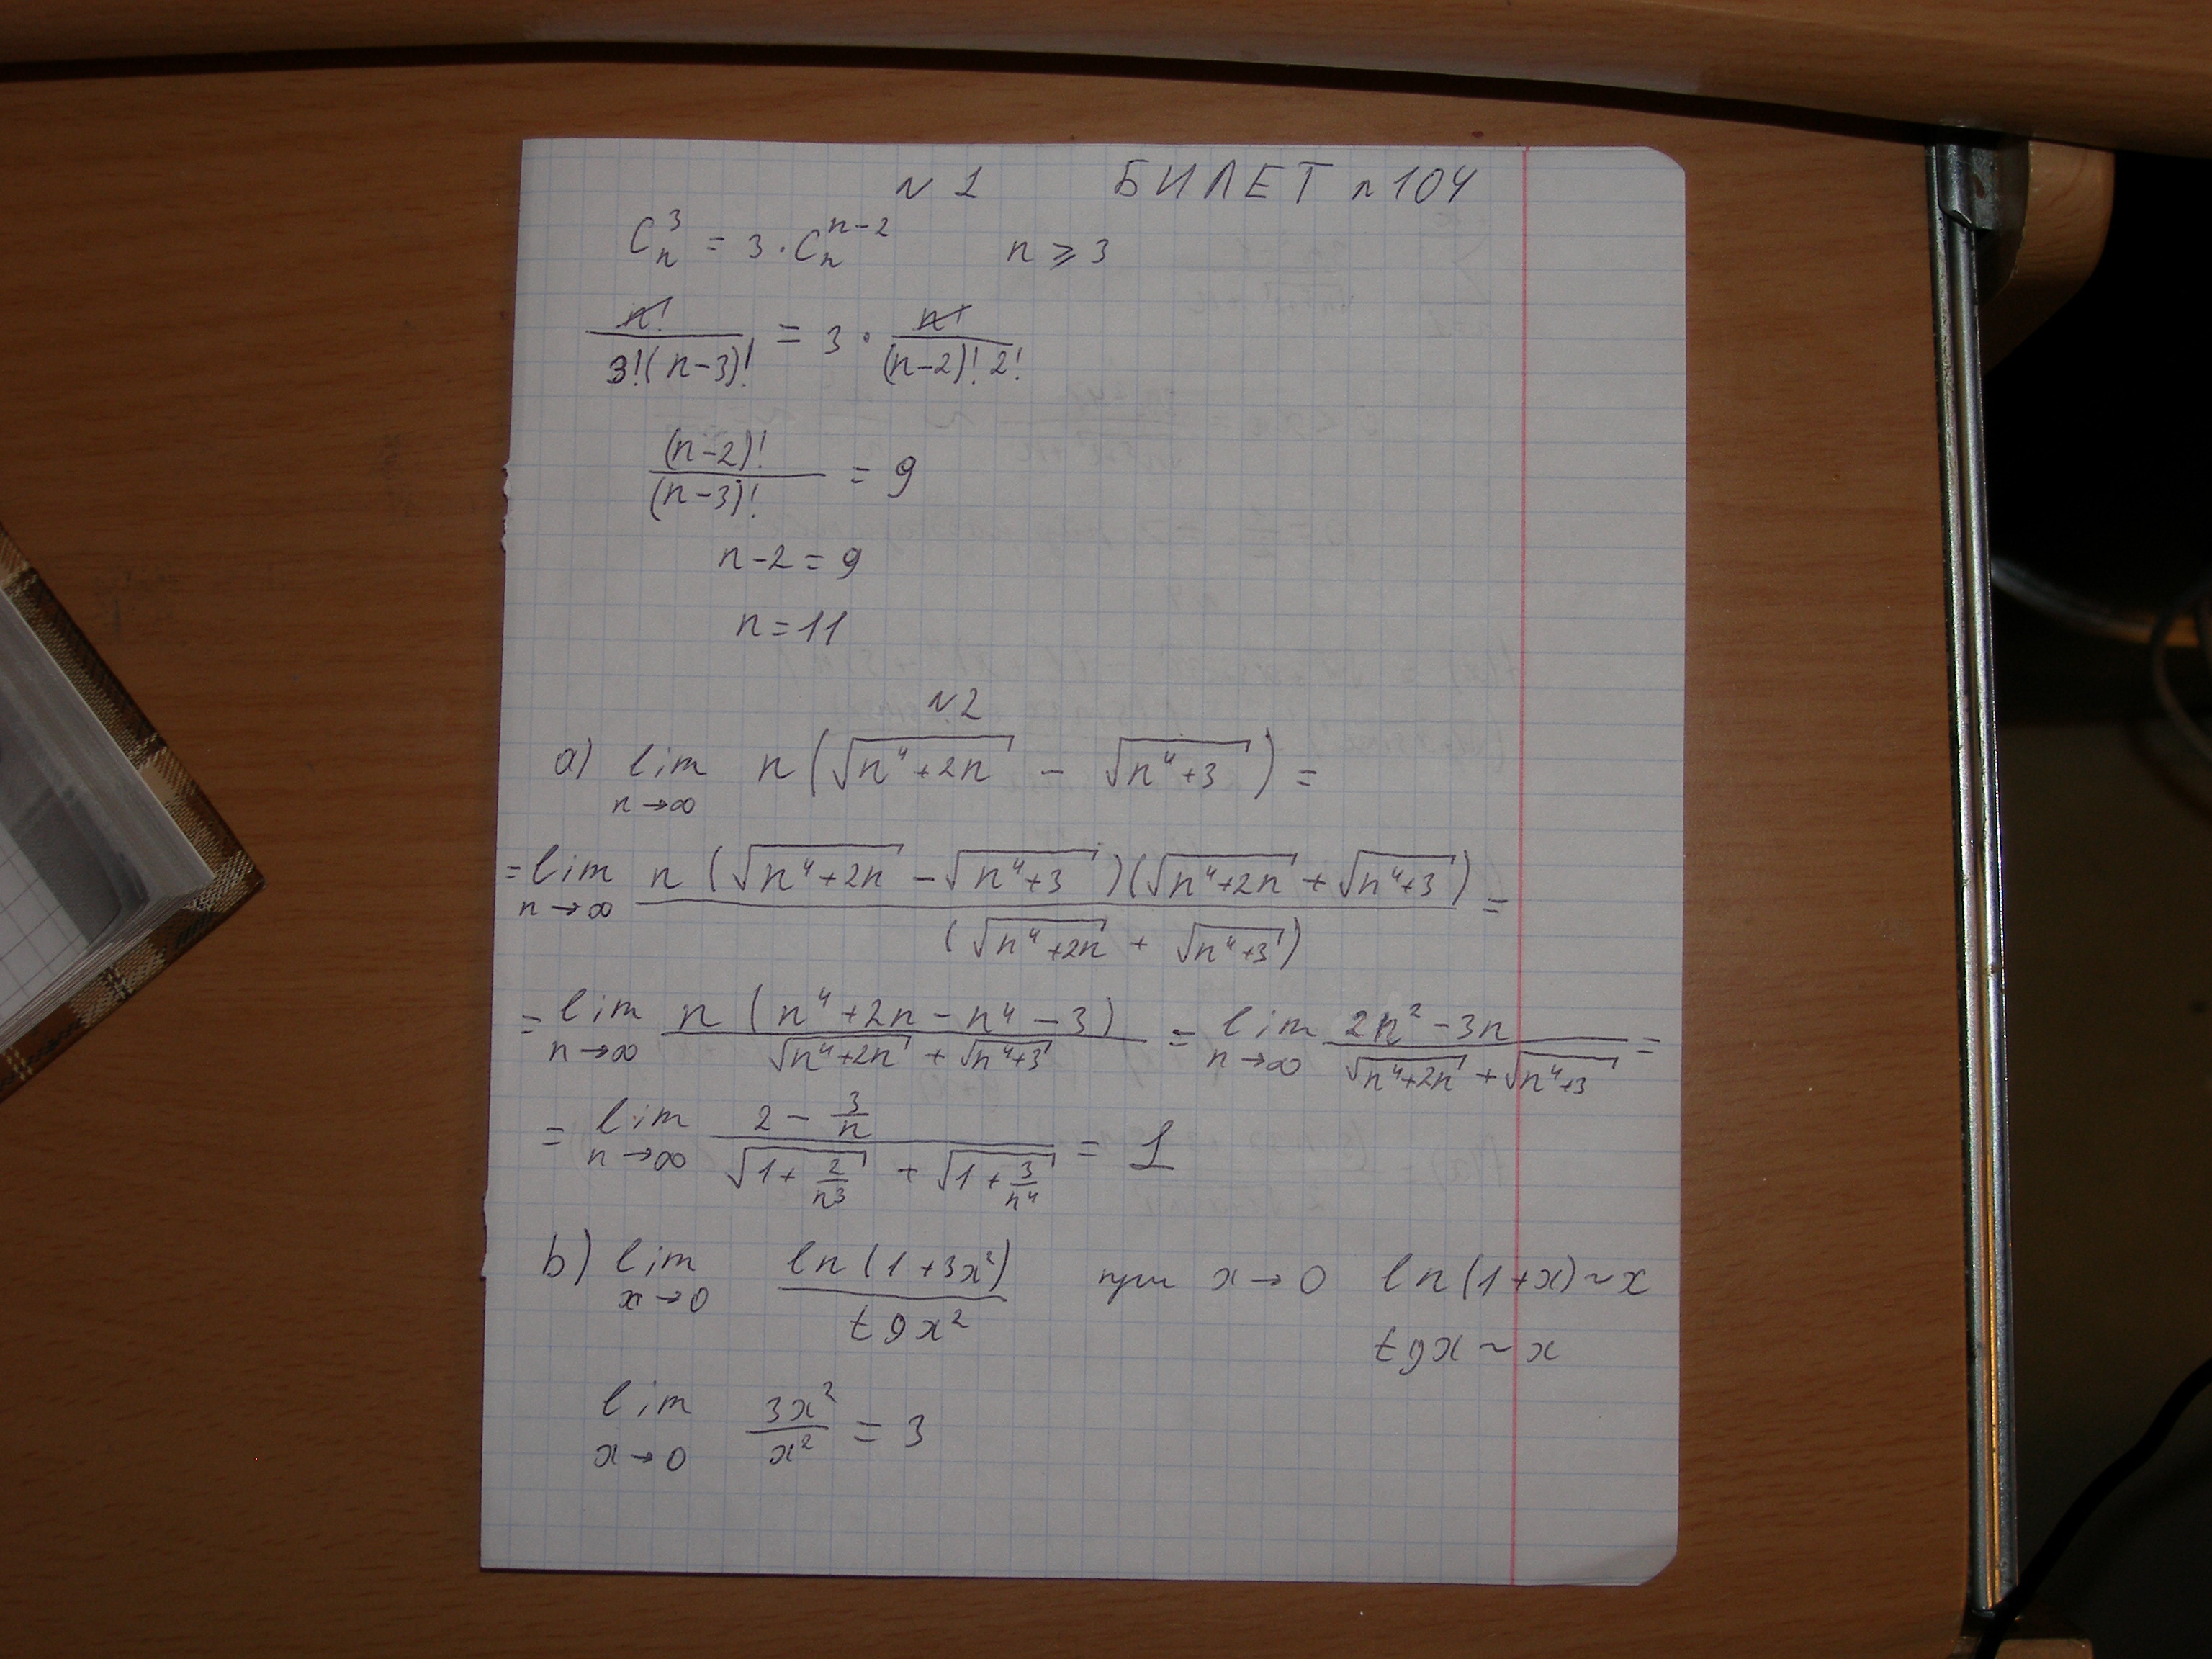 N 1 БИЛЕТ N 104
C_n^3 = 3 · C_n^{n-2} n ⩾ 3
n!/(3!(n-3)!) = 3 · n!/((n-2)! 2!)
(n-2)!/(n-3)! = 9
n-2 = 9
n = 11
N 2
a) lim_{n→∞} n(√(n⁴+2n) - √(n⁴+3)) =
= lim_{n→∞} n(√(n⁴+2n) - √(n⁴+3))(√(n⁴+2n) + √(n⁴+3))/(√(n⁴+2n) + √(n⁴+3)) =
= lim_{n→∞} n(n⁴+2n-n⁴-3)/(√(n⁴+2n) + √(n⁴+3)) = lim_{n→∞} (2n²-3n)/(√(n⁴+2n) + √(n⁴+3)) =
= lim_{n→∞} (2 - 3/n)/(√(1+2/n³) + √(1+3/n⁴)) = 1
b) lim_{x→0} ln(1+3x²)/tgx² при x→0 ln(1+x)~x
tgx ~ x
lim_{x→0} 3x²/x² = 3